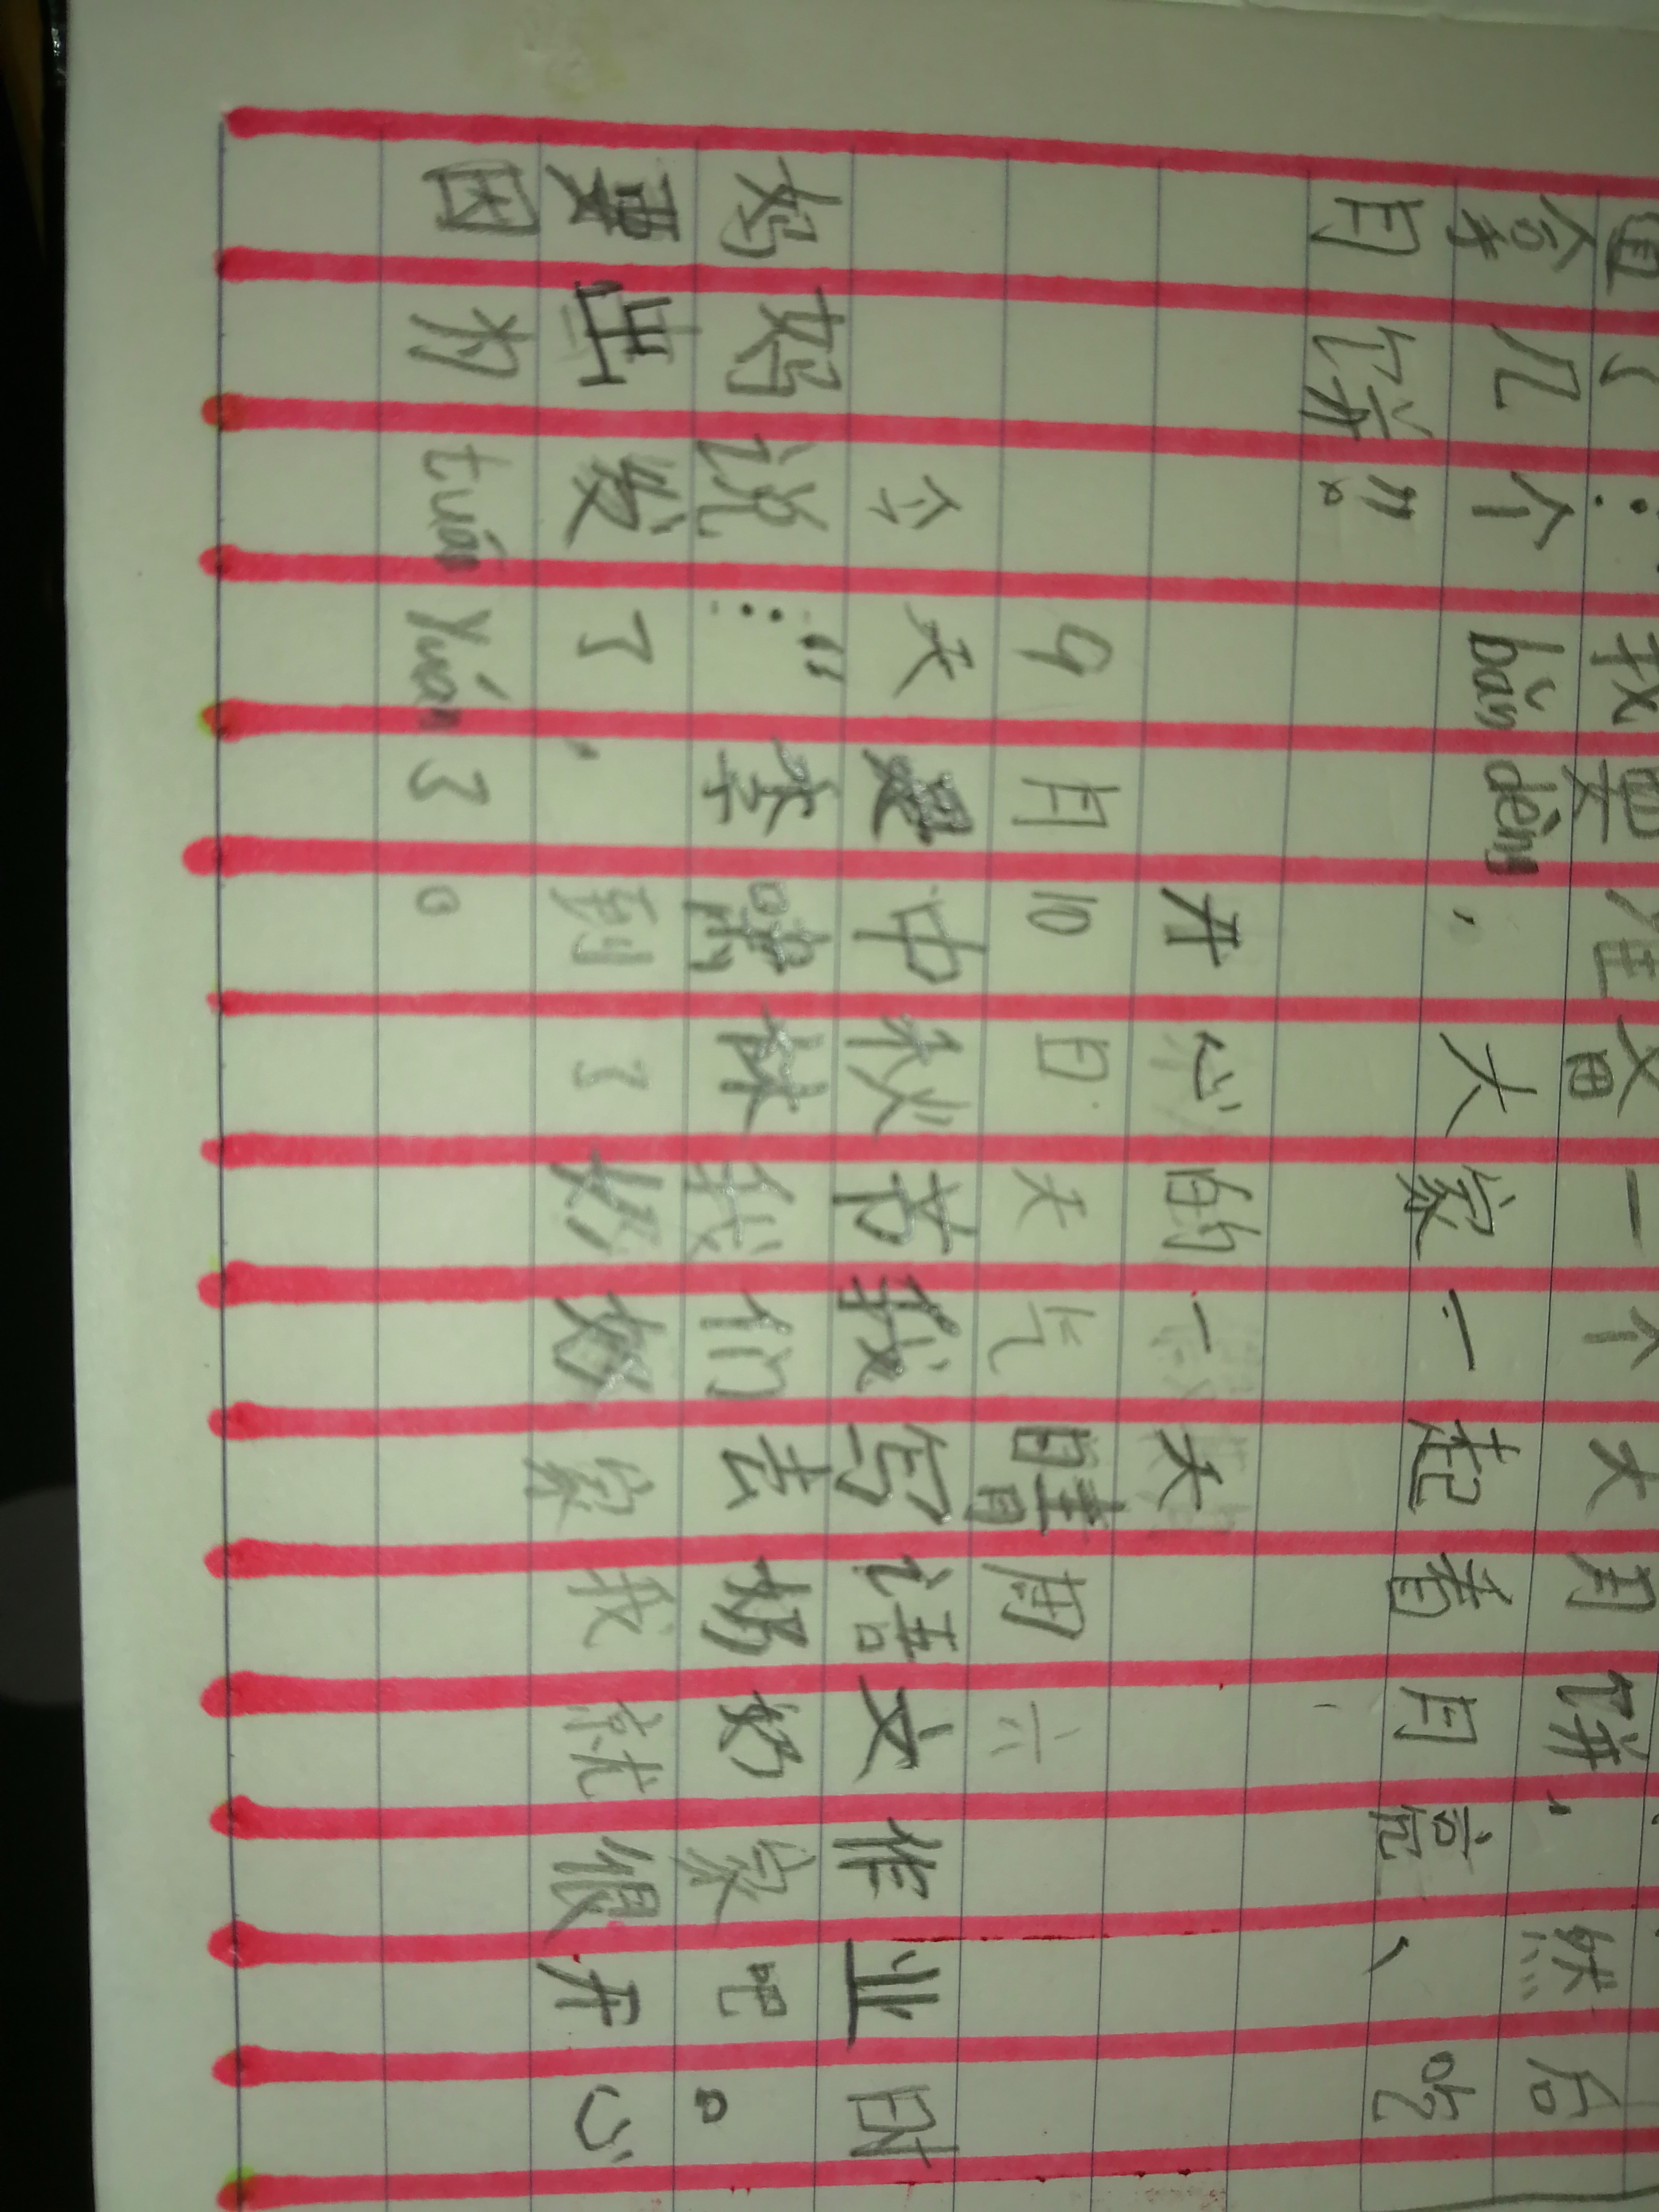 道了：我要准备一个大月饼，然后
拿几个bǎn dèng，大家一起看月亮、吃
月饼”。
开心的一天
9月10日 天气晴 周六
今天是中秋节我写语文作业时
妈妈说：“李啸林我们去奶奶家吧。
要出发了，到了奶奶家我就很开心
因为tuán yuán了。